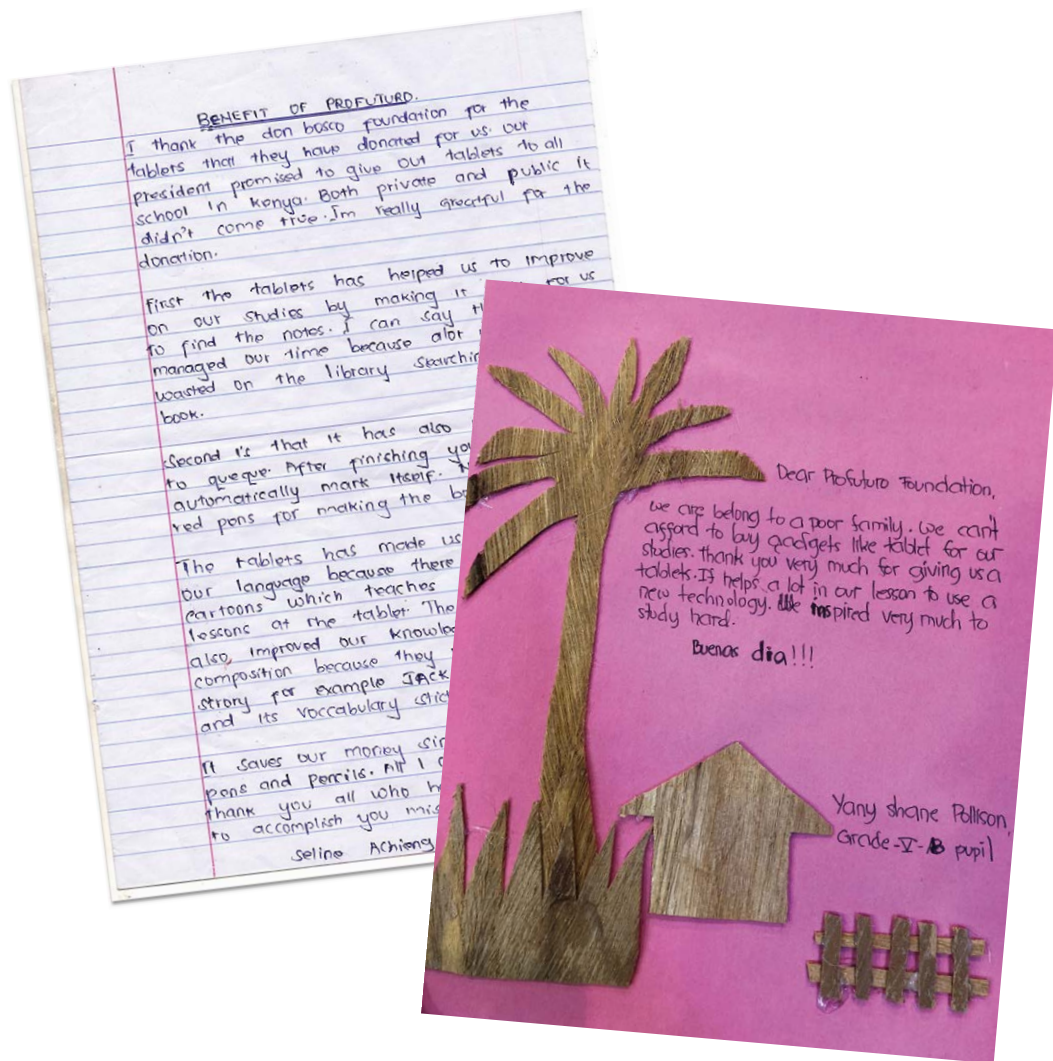 BENEFIT OF PROFUTURO.
I thank the don bosco foundation for the
tablets that they have donated for us. our
president promised to give out tablets to all
school in kenya. Both private and public it
didn't come true. Im really greatful for the
donation.
First the tablets has helped us to improve
on our studies by making it for us
to find the notes. I can say
managed our time because alot
wasted on the library
book.
Second is that it has also
to queque. After finishing
automatically mark itself.
red pens for making the
The tablets has made us
our language because there
cartoons which teaches
lessons at the tablet. The
also, improved our
composition because they
strory for example JACK
and its voccabulary
It saves our money
pens and pencils. All I
thank you all who
to accomplish you
Seline Achieng
Dear Profuturo Foundation,
we are belong to a poor family. we can't
afford to buy gadgets like tablet for our
studies. thank you very much for giving us a
tablets. It helps a lot in our lesson to use a
new technology. We inspired very much to
study hard.
Buenas dia!!!
Yany Shane Pollison,
Grade-V-B pupil